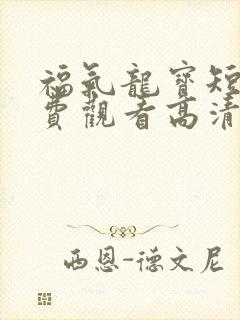 福氣龍寶短
費觀看高清
西恩-德文尼